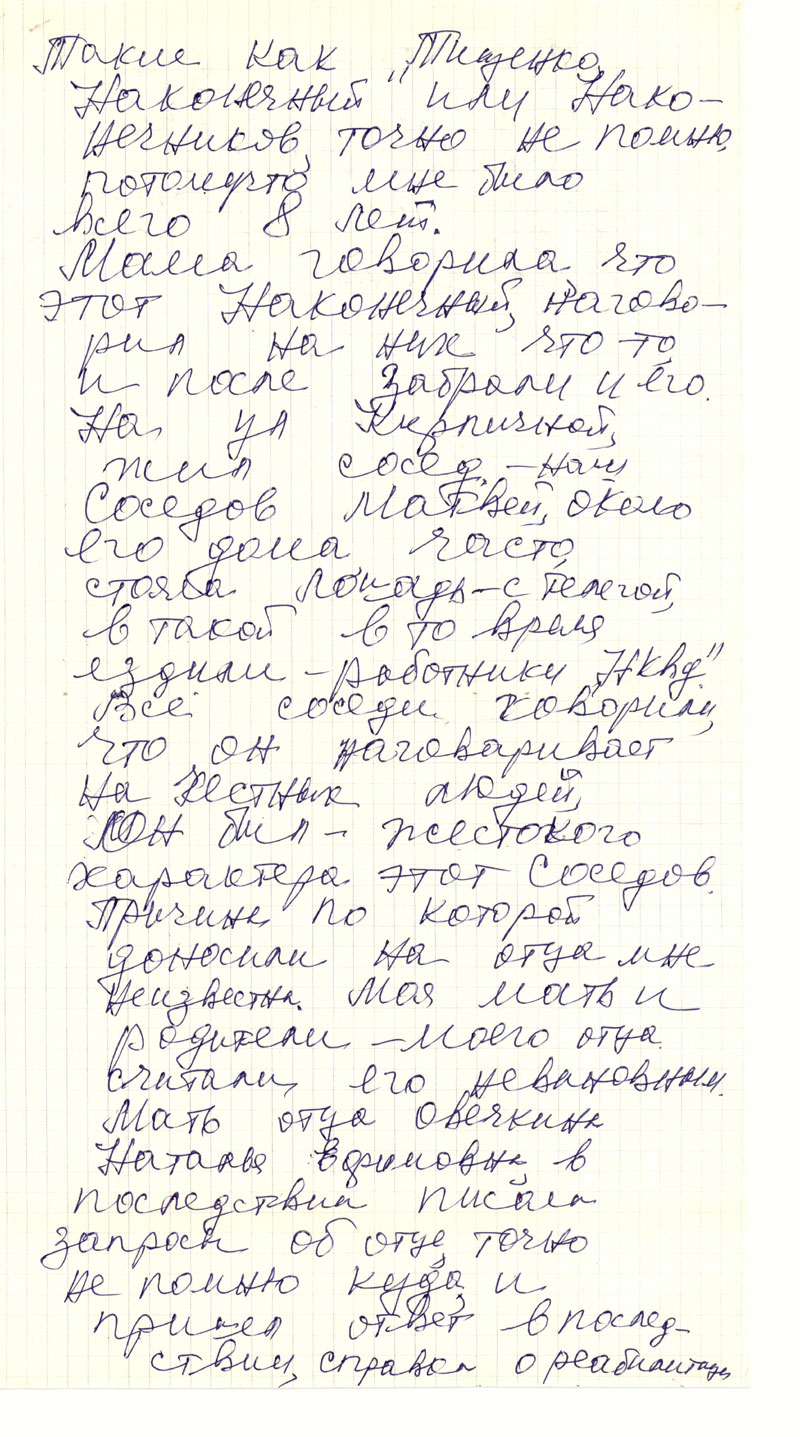 Такие как „Тищенко,
Наконечный" или Нако-
нечников, точно не помню,
потомучто мне было
всего 8 лет.
Мама говорила что
этот Наконечный, нагово-
рил на них что-то,
и после забрали и его.
На ул Кирпичной,
жил сосед, – наш
Соседов Матвей, около
его дома часто,
стояла лошадь – с телегой,
в такой в то время
ездили – работники „НКВД"
Все соседи говорили,
что он наговаривает
на честных людей,
Он был – жестокого
характера этот Соседов.
Причина по которой
доносили на отца мне
неизвестна. Моя мать и
родители – моего отца
считали, его невиновным.
Мать отца Овечкина
Наталья в
последствии писала
запросы об отце, точно
не помню куда, и
пришел ответ в послед-
ствии, справка о реабилитации